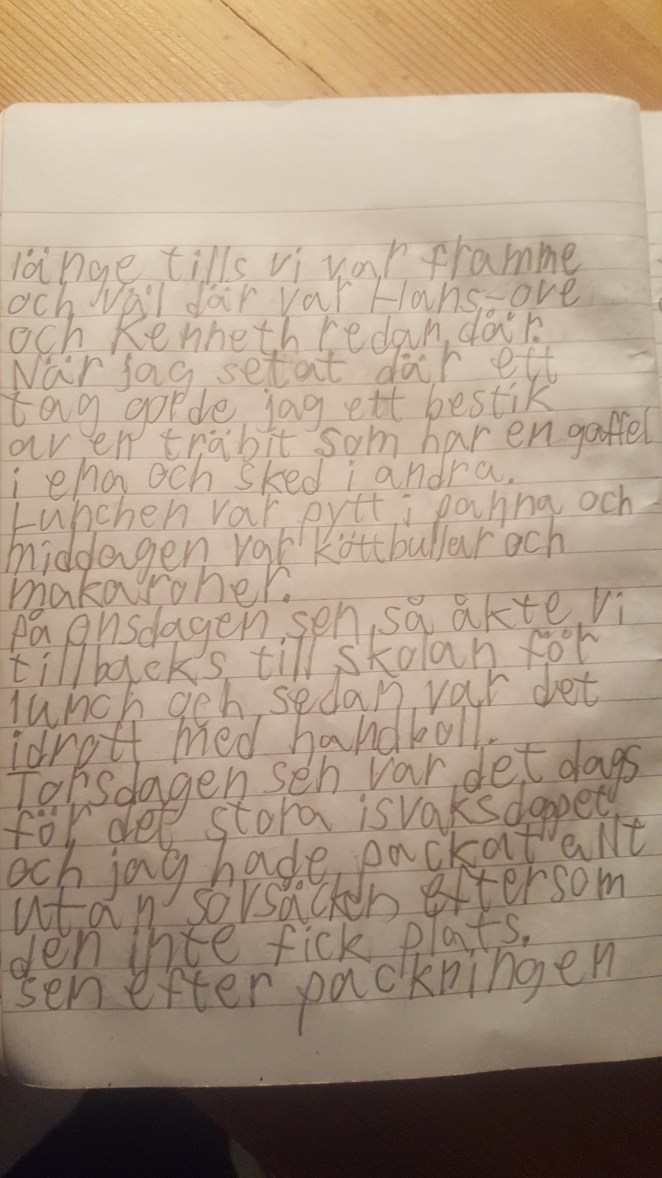 länge tills vi var framme
och väl där var Hans-ove
och Kenneth redan där.
När jag setat där ett
tag gorde jag ett bestik
av en träbit som har en gaffel
i ena och sked i andra.
Lunchen var pytt i panna och
middagen var köttbullar och
makaroner.
På onsdagen sen så åkte vi
tillbacks till skolan för
lunch och sedan var det
idrott med handboll.
Torsdagen sen var det dags
för det stora isvaksdoppet
och jag hade packat allt
utan sovsäcken eftersom
den inte fick plats.
sen efter packningen